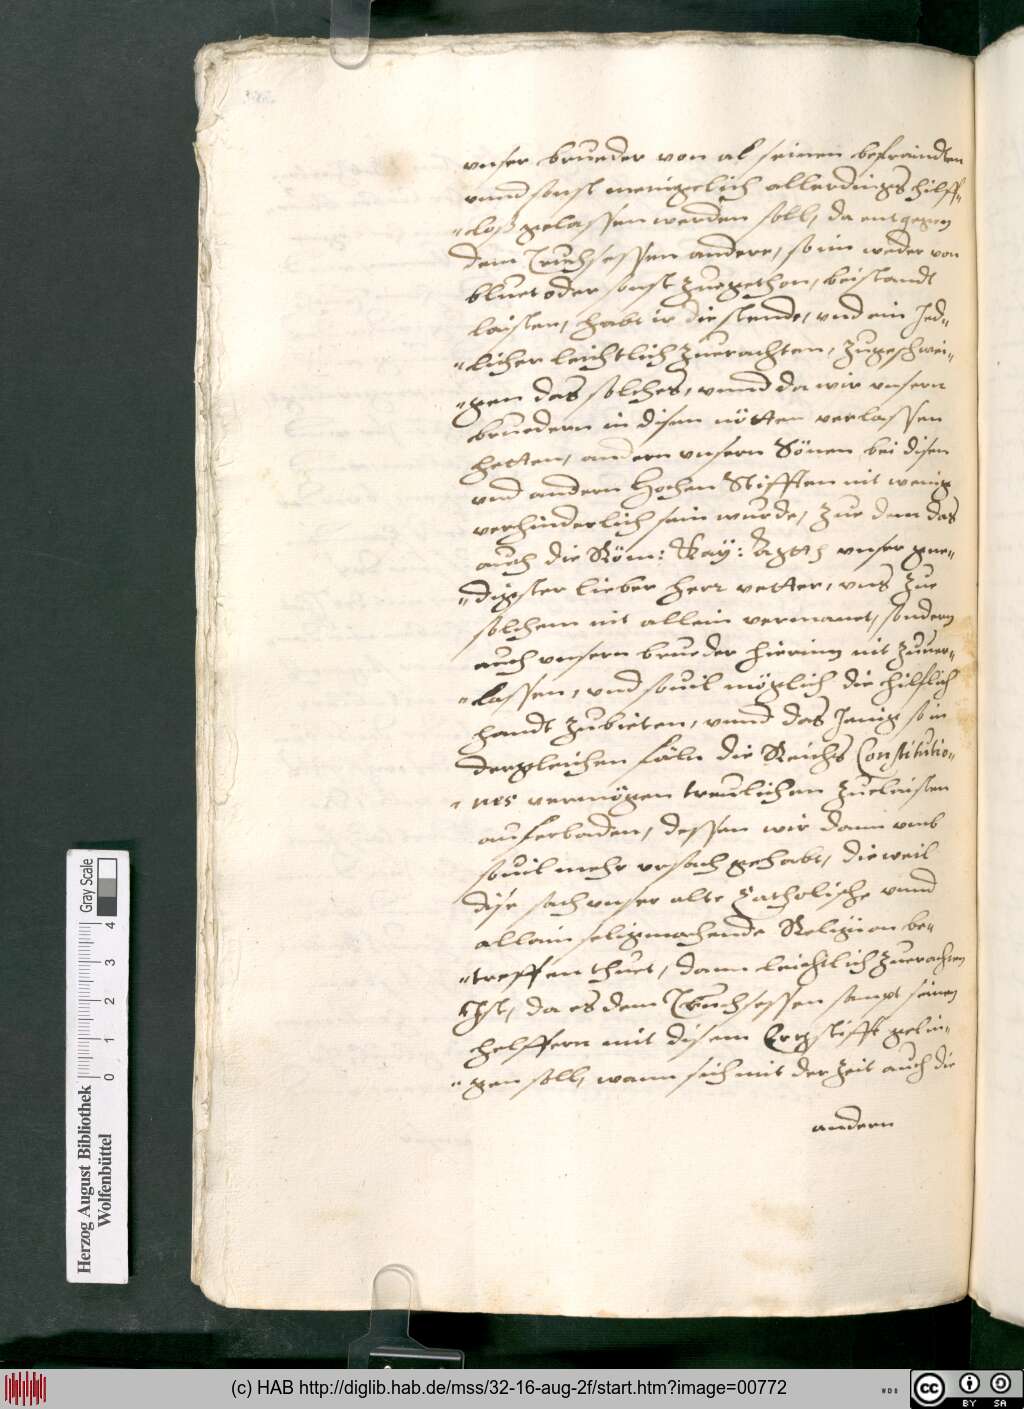 unser brueder von al seinen befraindten
unnd sonst menigelich allerdings hilff-
-loß gelassen werden soll, da entgegen
dem Truchsessen andere, so im weder von
bluet oder sonst zuegethon, beistandt
laisten, habt ir die stende, und ein Jed-
-licher leichtlich zuerachten, zugeschwei-
-gen das solches, unnd da wir unsern
bruedern in disen nötten verlassen
hetten, andern unsern Sönen bei disen
und andern Hochen Stifften nit wenig
verhinderlich sein wurde, zue dem das
auch die Röm: Kay: Mtt unser gne-
-digster lieber herr vetter, uns zue
solchem nit allein vermanet, sondern
auch unsern brueder hierinn nit zuver-
-lassen, und souil möglich die hilfflich
handt zubieten, unnd das Jenig so in
dergleichen fäln die Reichs Constitutio-
-nes vermögen treulichen zuelaisten
auferladen, dessen wir dann umb
souil mehr ursach gehabt, die weil
dise sach unser alte Catholische unnd
allain seligmachende Religion be-
-treffen thuet, dann leichtlich zuerachten
Ist, da es dem Truchsessen sampt seinen
helffern mit disem Ertzstifft gelin-
-gen soll, wann sich mit der zeit auch die
andern
Herzog August Bibliothek
Wolfenbüttel
0 1 2 3 4
Gray Scale
(c) HAB http://diglib.hab.de/mss/32-16-aug-2f/start.htm?image=00772
WDB
CC BY SA